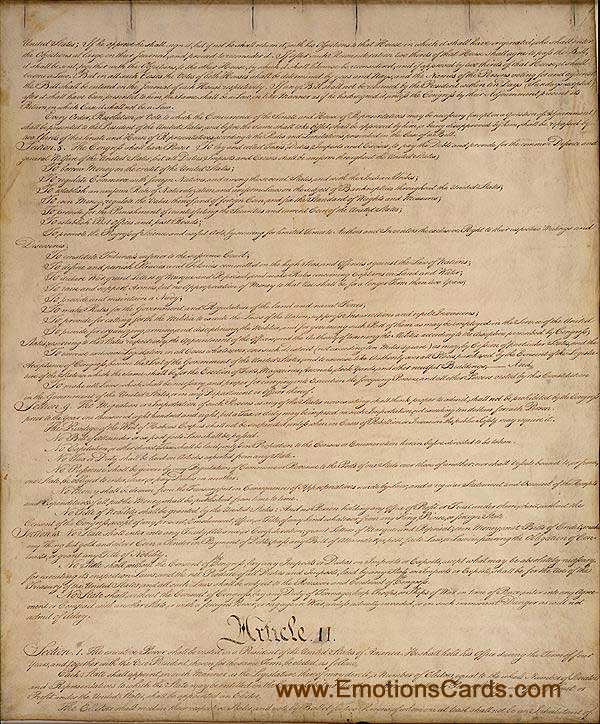 United States; If he approve he shall sign it, but if not he shall return it, with his Objections to that House in which it shall have originated, who shall enter
the Objections at large on their Journal, and proceed to reconsider it. If after such Reconsideration two thirds of that House shall agree to pass the Bill,
it shall be sent, together with the Objections, to the other House, by which it shall likewise be reconsidered, and if approved by two thirds of that House, it shall
become a Law. But in all such Cases the Votes of both Houses shall be determined by yeas and Nays, and the Names of the Persons voting for and against
the Bill shall be entered on the Journal of each House respectively. If any Bill shall not be returned by the President within ten Days
after it shall have been presented to him, the Same shall be a Law, in like Manner as if he had signed it, unless the Congress by their Adjournment prevent its
Return, in which Case it shall not be a Law.
Every Order, Resolution, or Vote to which the Concurrence of the Senate and House of Representatives may be necessary (except on a question of Adjournment)
shall be presented to the President of the United States; and before the Same shall take Effect, shall be approved by him, or being disapproved by him, shall be repassed by
two thirds of the Senate and House of Representatives, according to the Rules and Limitations prescribed in the Case of a Bill.
Section. 8. The Congress shall have Power To lay and collect Taxes, Duties, Imposts and Excises, to pay the Debts and provide for the common Defence and
general Welfare of the United States; but all Duties, Imposts and Excises shall be uniform throughout the United States;
To borrow Money on the credit of the United States;
To regulate Commerce with foreign Nations, and among the several States, and with the Indian Tribes;
To establish an uniform Rule of Naturalization, and uniform Laws on the subject of Bankruptcies throughout the United States;
To coin Money, regulate the Value thereof, and of foreign Coin, and fix the Standard of Weights and Measures;
To provide for the Punishment of counterfeiting the Securities and current Coin of the United States;
To establish Post Offices and post Roads;
To promote the Progress of Science and useful Arts, by securing for limited Times to Authors and Inventors the exclusive Right to their respective Writings and
Discoveries;
To constitute Tribunals inferior to the supreme Court;
To define and punish Piracies and Felonies committed on the high Seas, and Offences against the Law of Nations;
To declare War, grant Letters of Marque and Reprisal, and make Rules concerning Captures on Land and Water;
To raise and support Armies, but no Appropriation of Money to that Use shall be for a longer Term than two Years;
To provide and maintain a Navy;
To make Rules for the Government and Regulation of the land and naval Forces;
To provide for calling forth the Militia to execute the Laws of the Union, suppress Insurrections and repel Invasions;
To provide for organizing, arming, and disciplining, the Militia, and for governing such Part of them as may be employed in the Service of the United
States, reserving to the States respectively, the Appointment of the Officers, and the Authority of training the Militia according to the discipline prescribed by Congress;
To exercise exclusive Legislation in all Cases whatsoever, over such District (not exceeding ten Miles square) as may, by Cession of particular States, and the
Acceptance of Congress, become the Seat of the Government of the United States, and to exercise like Authority over all Places purchased by the Consent of the Legislature
of the State in which the Same shall be, for the Erection of Forts, Magazines, Arsenals, dock-Yards, and other needful Buildings;—And
To make all Laws which shall be necessary and proper for carrying into Execution the foregoing Powers, and all other Powers vested by this Constitution
in the Government of the United States, or in any Department or Officer thereof.
Section. 9. The Migration or Importation of such Persons as any of the States now existing shall think proper to admit, shall not be prohibited by the Congress
prior to the Year one thousand eight hundred and eight, but a Tax or duty may be imposed on such Importation, not exceeding ten dollars for each Person.
The Privilege of the Writ of Habeas Corpus shall not be suspended, unless when in Cases of Rebellion or Invasion the public Safety may require it.
No Bill of Attainder or ex post facto Law shall be passed.
No Capitation, or other direct, Tax shall be laid, unless in Proportion to the Census or Enumeration herein before directed to be taken.
No Tax or Duty shall be laid on Articles exported from any State.
No Preference shall be given by any Regulation of Commerce or Revenue to the Ports of one State over those of another: nor shall Vessels bound to, or from,
one State, be obliged to enter, clear, or pay Duties in another.
No Money shall be drawn from the Treasury, but in Consequence of Appropriations made by Law; and a regular Statement and Account of the Receipts
and Expenditures of all public Money shall be published from time to time.
No Title of Nobility shall be granted by the United States: And no Person holding any Office of Profit or Trust under them, shall, without the
Consent of the Congress, accept of any present, Emolument, Office, or Title, of any kind whatever, from any King, Prince, or foreign State.
Section. 10. No State shall enter into any Treaty, Alliance, or Confederation; grant Letters of Marque and Reprisal; coin Money; emit Bills of Credit; make
any Thing but gold and silver Coin a Tender in Payment of Debts; pass any Bill of Attainder, ex post facto Law, or Law impairing the Obligation of Con-
tracts, or grant any Title of Nobility.
No State shall, without the Consent of the Congress, lay any Imposts or Duties on Imports or Exports, except what may be absolutely necessary
for executing it's inspection Laws: and the net Produce of all Duties and Imposts, laid by any State on Imports or Exports, shall be for the Use of the
Treasury of the United States; and all such Laws shall be subject to the Revision and Controul of the Congress.
No State shall, without the Consent of Congress, lay any Duty of Tonnage, keep Troops, or Ships of War in time of Peace, enter into any Agree-
ment or Compact with another State, or with a foreign Power, or engage in War, unless actually invaded, or in such imminent Danger as will not
admit of delay.
Article. II.
Section. 1. The executive Power shall be vested in a President of the United States of America. He shall hold his Office during the Term of four
Years, and, together with the Vice President, chosen for the same Term, be elected, as follows
Each State shall appoint, in such Manner as the Legislature thereof may direct, a Number of Electors, equal to the whole Number of Senators
and Representatives to which the State may be entitled in the
www.EmotionsCards.com
The Electors shall meet in their respective States, and vote by Ballot for two Persons, of whom one at least shall not be an Inhabitant of